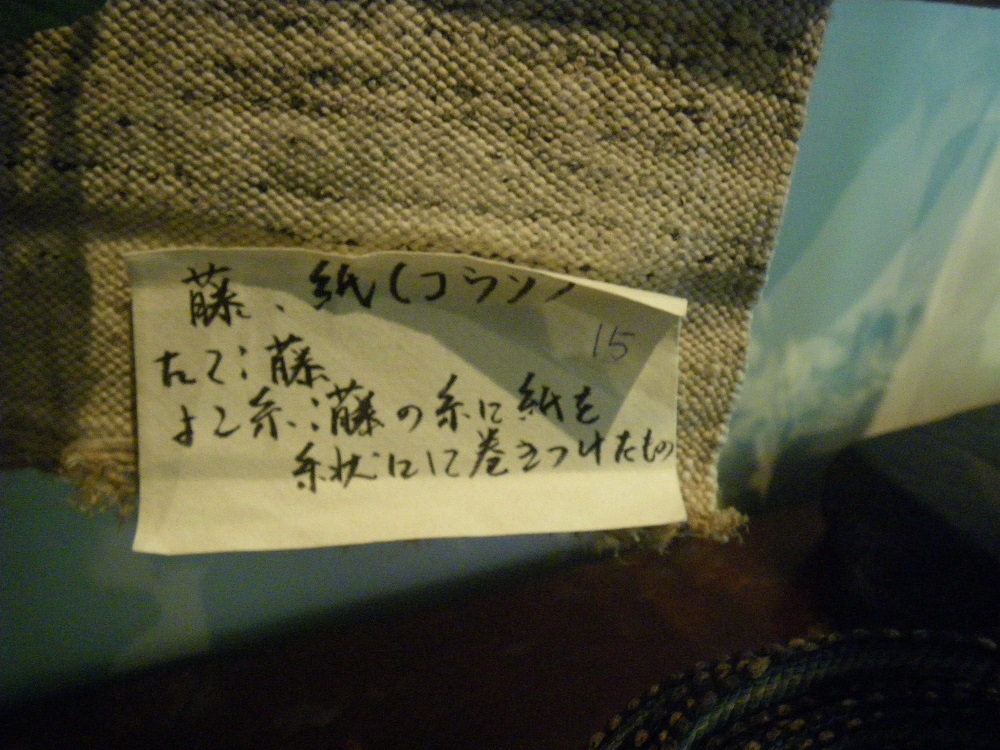 藤、紙(コウゾ)
15
たて:藤
よこ糸:藤の糸に紙を
糸状にして巻きつけたもの